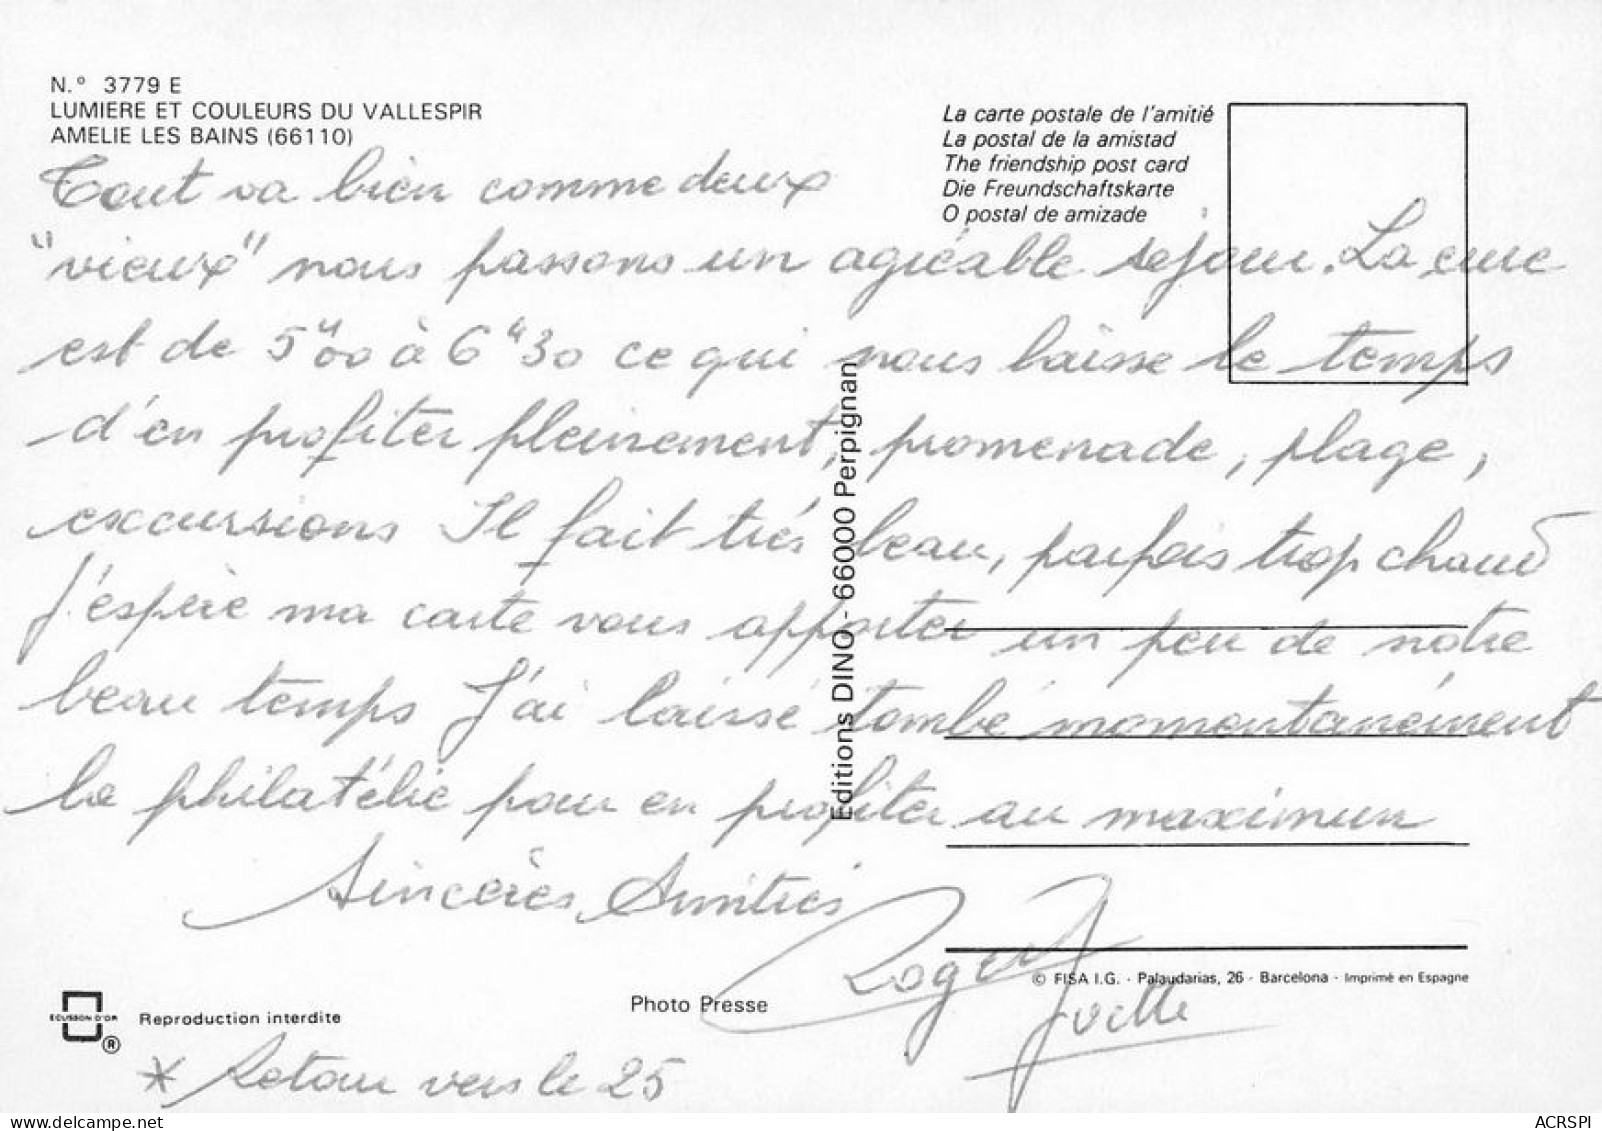 N.º 3779 E
LUMIERE ET COULEURS DU VALLESPIR
AMELIE LES BAINS (66110)
La carte postale de l'amitié
La postal de la amistad
The friendship post card
Die Freundschaftskarte
O postal de amizade
Tout va bien comme deux
"vieux" nous passons un agréable sejour. La cure
est de 5H00 à 6H30 ce qui nous laisse le temps
d'en profiter pleinement, promenade, plage,
excursions Il fait très beau, parfois trop chaud
J'espère ma carte vous apporter un peu de notre
beau temps J'ai laissé tombé momentanément
la philatélie pour en profiter au maximun
Sincères Amitiés
Roger
Yvette
Editions DINO - 66000 Perpignan
© FISA I.G. - Palaudarias, 26 - Barcelona - Imprimé en Espagne
Photo Presse
ECUSSON D'OR
®
Reproduction interdite
* Retour vers le 25
ecuttcm.delcampe.net
ACRSPI